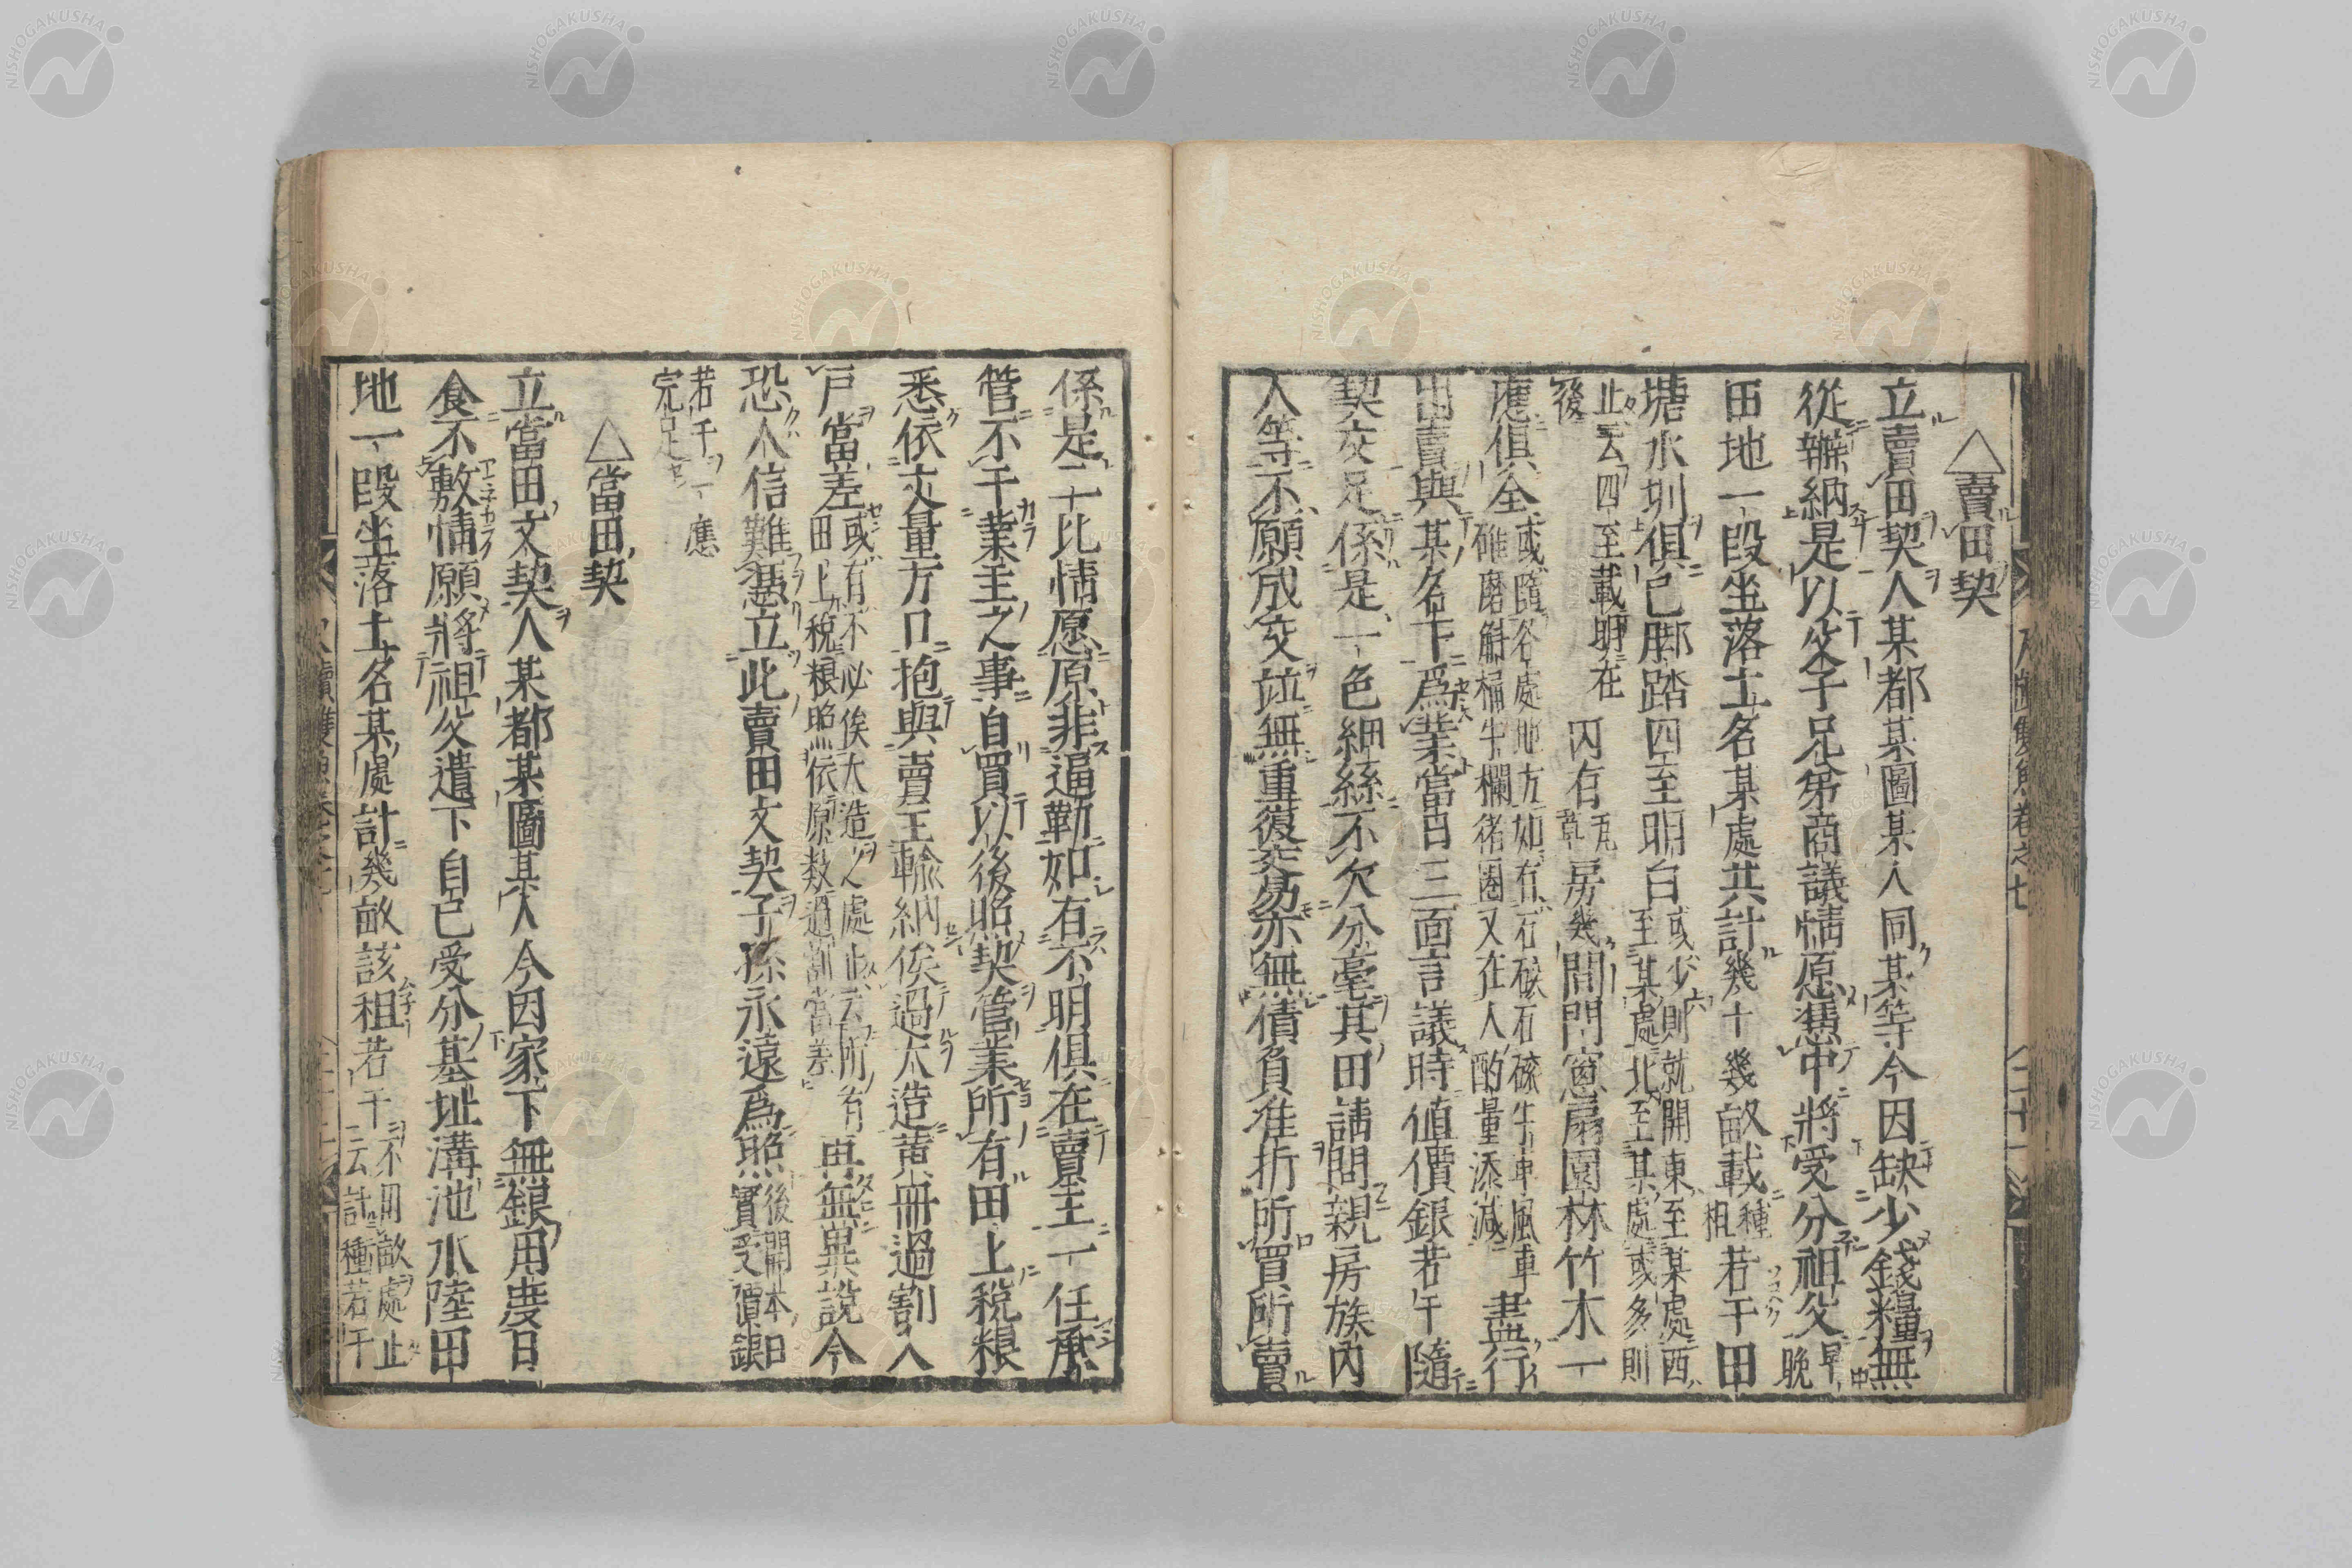 △賣田契
立賣田契人某都某圖某人同某等今因缺少錢糧無
從辦納是以父子兄弟商議情愿憑中將受分祖父早晚
田地一段坐落土名某處共計幾十幾畝載種租若干田
塘水圳俱已脚踏四至明白或少則就開東至某處西至某處北至某處或多則
止云四至載明在後内有瓦草房幾間門窓扇園林竹木一
應俱全或隨各處地方如有石磙石磉牛車風車碓磨斛桶牛欄猪圈又在人酌量添減盡行
出賣與某名下爲業當日三面言議時値價銀若干隨
契交足係是一色細絲不欠分毫其田請問親房族內
人等不願成交並無重復交易亦無債負准折所買所賣
係是二比情愿原非逼勒如有不明俱在賣主一任承
管不干業主之事自買以後照契管業所有田上稅粮
悉依丈量方口抱與賣主輸納俟過大造黄冊過割入
戶當差或有不必俟大造之處止云所有田上稅粮照依原数過割當差再無異説今
恐人信難憑立此賣田文契子孫永遠爲照後開本日實受價銀
若干一應完足
△當田契
立當田文契人某都某圖某人今因家下無銀用度日
食不敷情願將祖父遺下自己受分基址溝池水陸田
地一段坐落土名某處計幾畝該租若干不用畝處止云計種若干
NISHOGAKUSHA